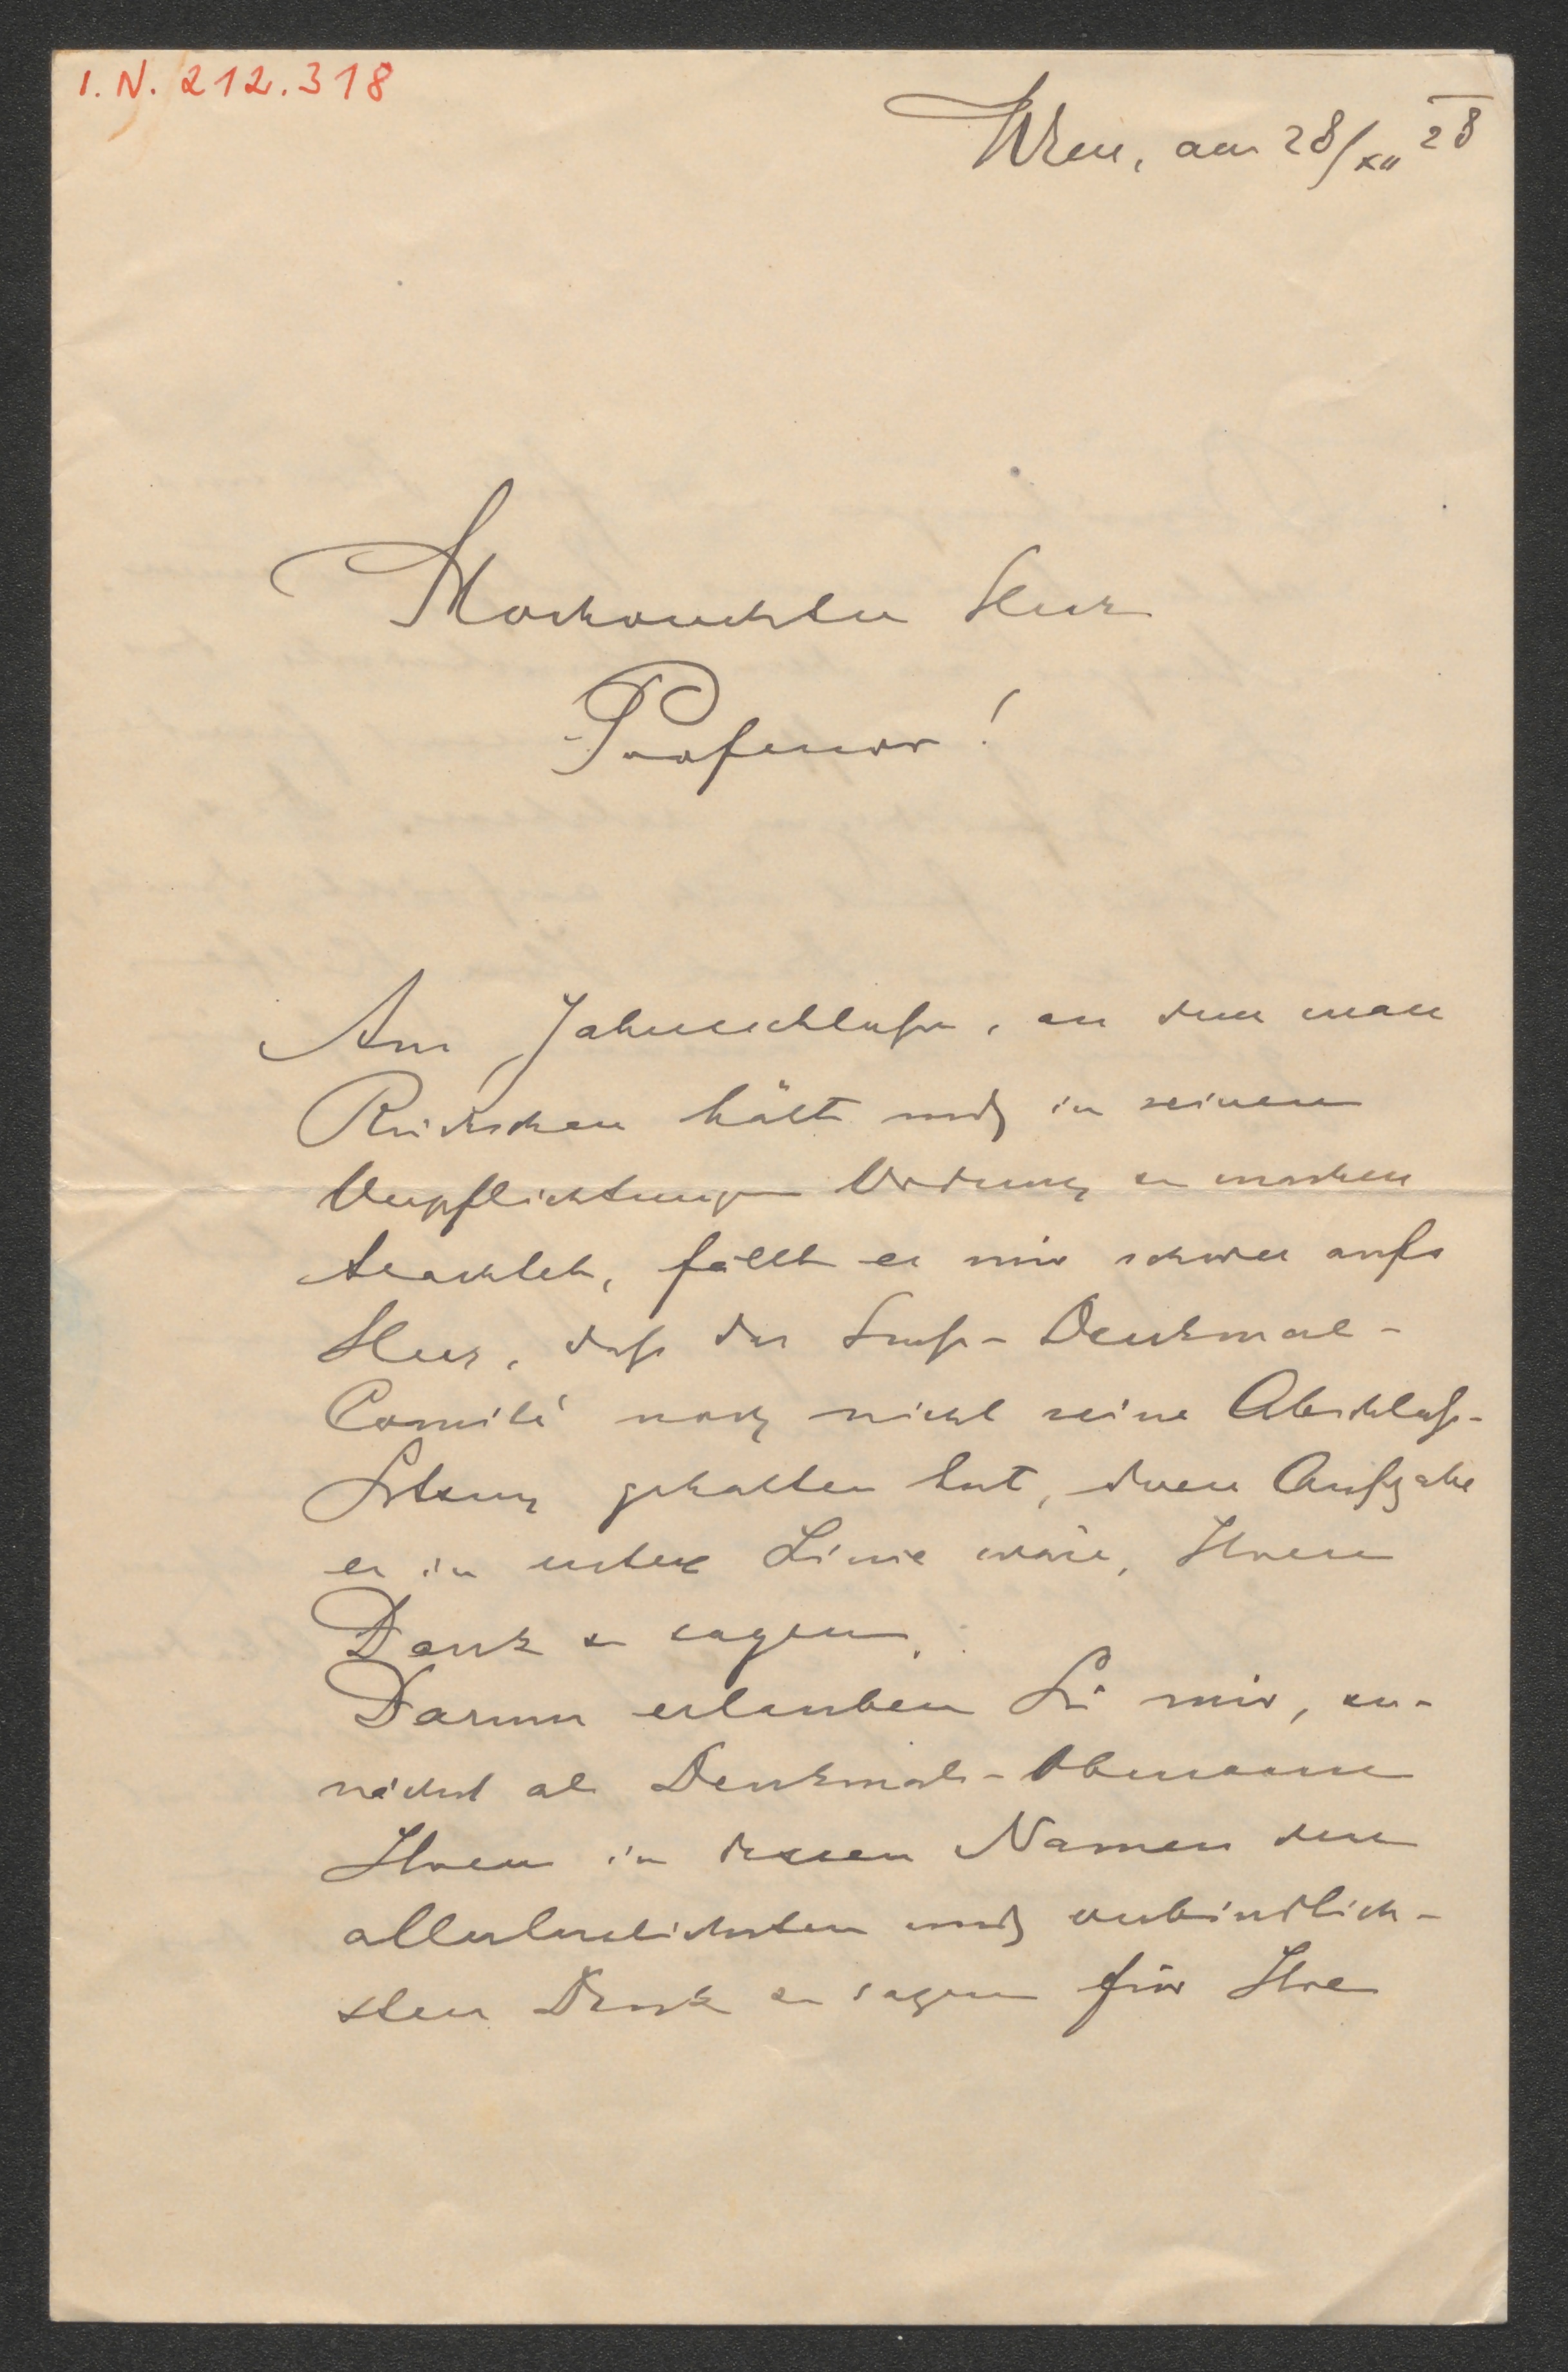 I.N. 212.318
Wien, am 28/XII 28
Hochverehrter Herr
Professor!
Am Jahresschlusse, an dem man
Rückschau hält und in seinen
Verpflichtungen Ordnung zu machen
trachtet, fällt es mir schwer aufs
Herz, daß das Sueß-Denkmal-
Comité noch nicht seine Abschluß-
Sitzung gehalten hat, deren Aufgabe
es in erster Linie wäre, Ihnen
Dank zu sagen.
Darum erlauben Sie mir, zu-
nächst als Denkmals-Obmann
Ihnen in dessen Namen den
allerherzlichsten und verbindlich-
sten Dank zu sagen für Ihre